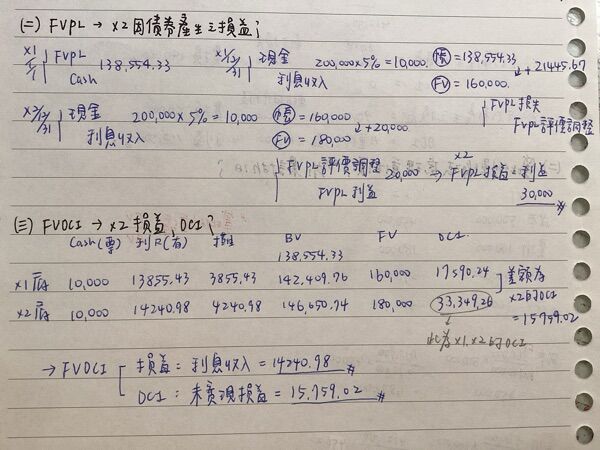 (二) FVPL → X2因債券產生之損益?
X1 1/1 FVPL 138,554.33
Cash
X1 12/31 現金 200,000×5% = 10,000
利息收入
帳 = 138,554.33
FV = 160,000 → +21445.67
FVPL損失
FVPL評價調整
X2/12/31 現金 200,000×5% = 10,000
利息收入
帳 = 160,000
FV = 180,000 → +20,000
FVPL評價調整 20,000
FVPL利益
→ X2 FVPL損益 = 利益 30,000
(三) FVOCI → X2 損益, OCI?
Cash(票) 利R(有) 攤 BV FV OCI
138,554.33
X1底 10,000 13855.43 3855.43 142,409.76 160,000 17590.24
X2底 10,000 14240.98 4240.98 146,650.74 180,000 33,349.26
差額為
X2的OCI
=15759.02
↓
此為X1.X2的OCI
→ FVOCI 損益: 利息收入 = 14240.98 #
OCI: 未實現損益 = 15,759.02 #